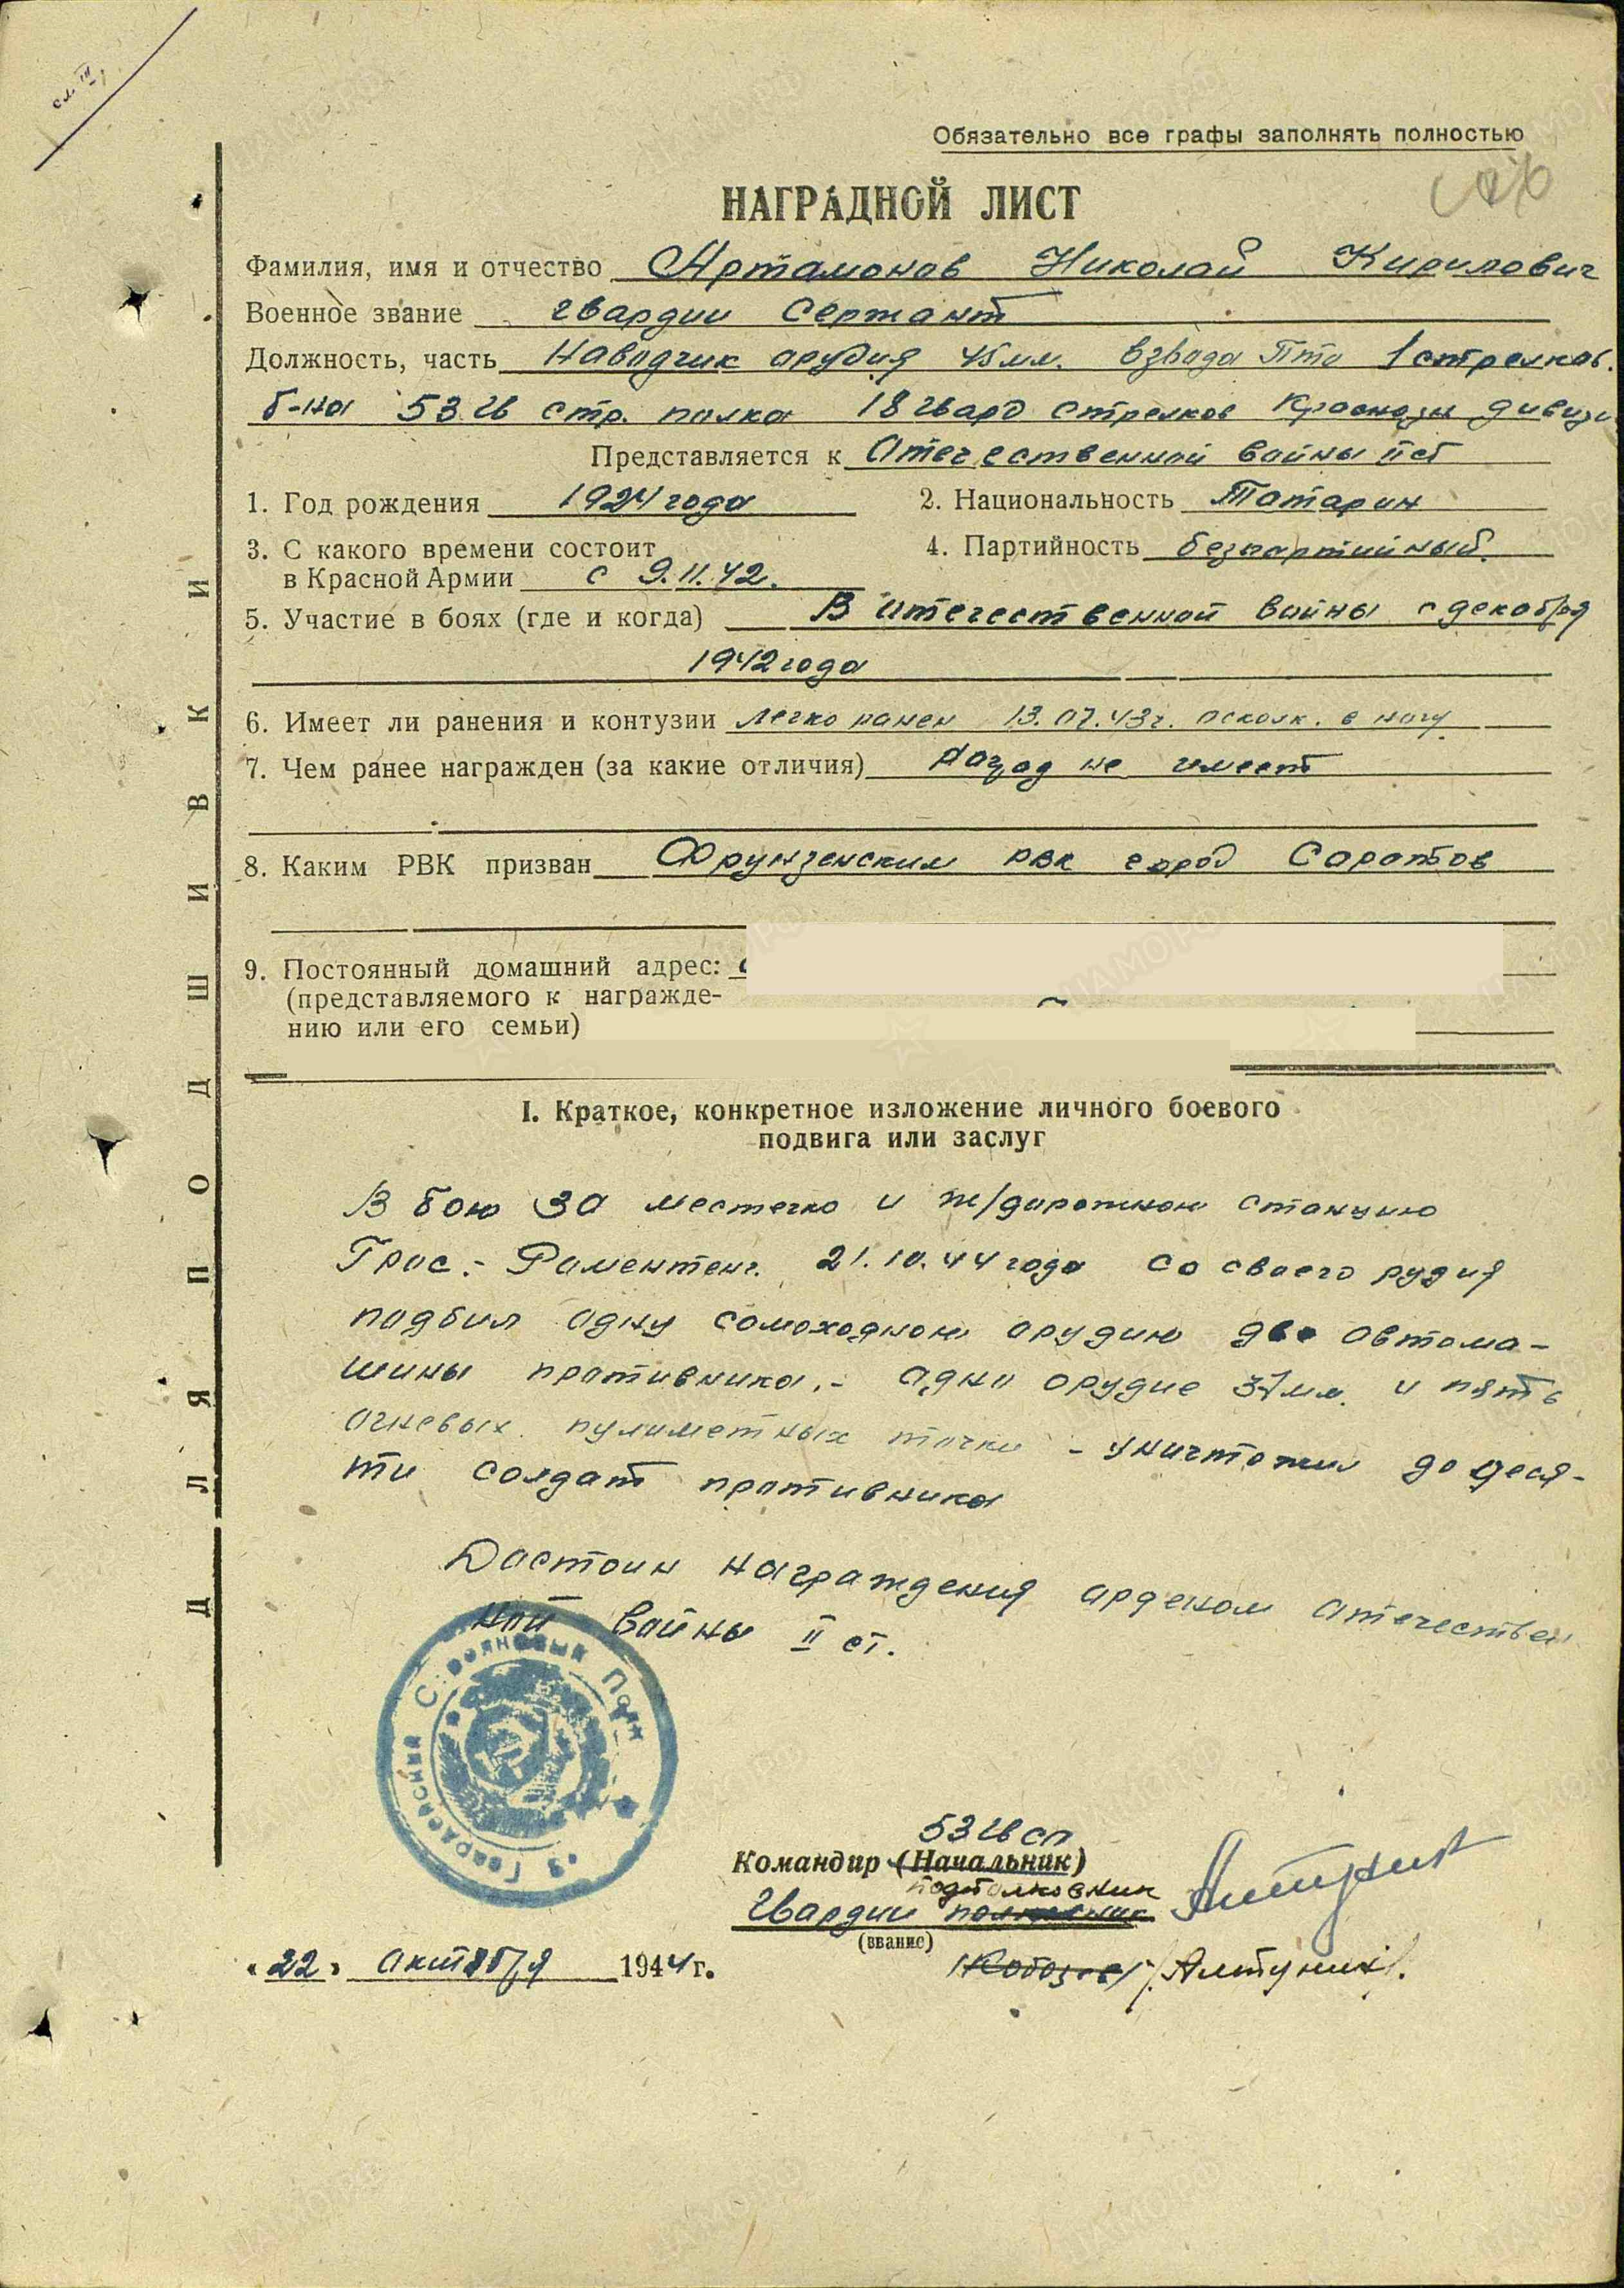 сл. III
Обязательно все графы заполнять полностью
НАГРАДНОЙ ЛИСТ
Фамилия, имя и отчество Артамонов Николай Кирилович
Военное звание гвардии Сержант
Должность, часть Наводчик орудия 45 мм. взвода Пто 1 стрелков.
б-на 53 гв стр. полка 18 гвард стрелков Краснозн дивизи
Представляется к Отечественной войны II ст
1. Год рождения 1924 года 2. Национальность Татарин
3. С какого времени состоит 4. Партийность безпартийный.
в Красной Армии с 9.11.42.
5. Участие в боях (где и когда) В отечественной войны с декабря
1942 года
6. Имеет ли ранения и контузии легко ранен 13.07.43 г. осколк. в ногу
7. Чем ранее награжден (за какие отличия) не имеет
8. Каким РВК призван Фрунзенским рвк город Саратов
9. Постоянный домашний адрес:
(представляемого к награжде-
нию или его семьи)
I. Краткое, конкретное изложение личного боевого
подвига или заслуг
В бою за местечко и ж/дорожною станцию
Грос.- Роментенг. 21.10.44 года со своего рудия
подбил одну самоходною орудию две автома-
шины противника.- одно орудие 37 мм. и пять
огневых пулиметных точки - уничтожил до деся-
ти солдат противника
Достоин награждения орденом отечествен
ной войны II ст.
53 Гвардейский Стрелковый Полк
53 гв сп
Командир (Начальник)
подполковник
Гвардии полковник
(звание)
«22» октября 1944 г. Кобозев /Алтунин/.
ДЛЯ ПОДШИВКИ
ЦАМО.РФ